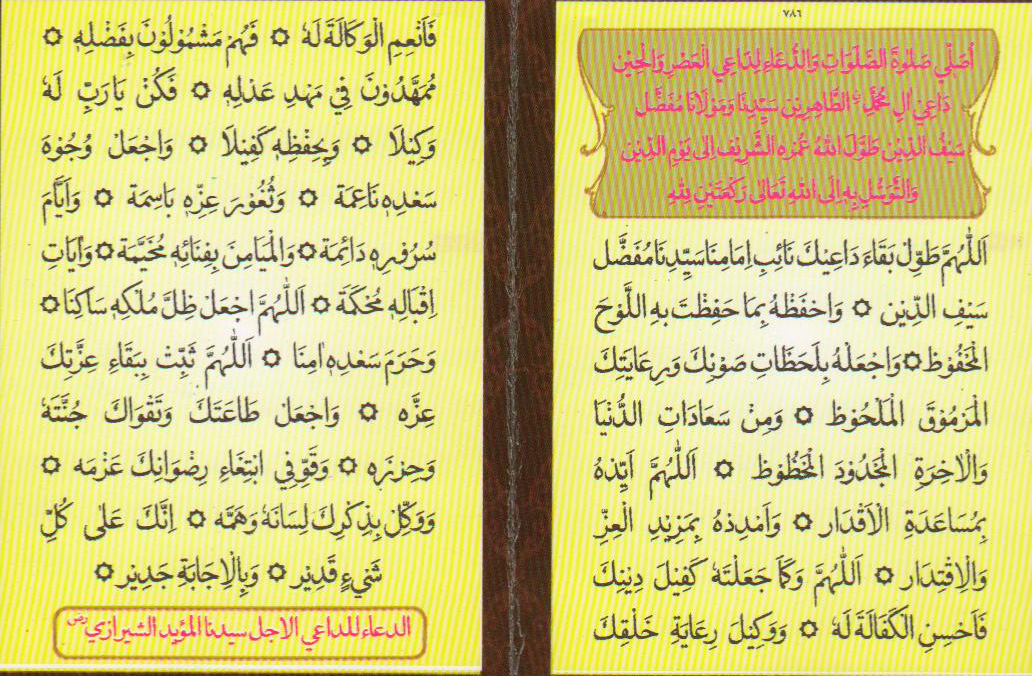 ٧٨٦
اُصَلِّي صَلٰوةَ الصَّلَوَاتِ وَالدُّعَاءِ لِدَاعِي الْعَصْرِ وَالْحِيْنِ
دَاعِيْ اٰلِ مُحَمَّدٍ الطَّاهِرِيْنَ سَيِّدِنَا وَمَوْلَانَا مُفَضَّل
سَيْفُ الدِّيْن طَوَّلَ اللّٰهُ عُمْرَهُ الشَّرِيْفَ اِلٰى يَوْمِ الدِّيْنِ
وَالتَّوَسُّلِ بِهِ اِلَى اللّٰهِ تَعَالٰى رَكْعَتَيْنِ لِلّٰهِ
اَللّٰهُمَّ طَوِّلْ بَقَاءَ دَاعِيْكَ نَائِبِ اِمَامِنَا سَيِّدِنَا مُفَضَّل
سَيْفِ الدِّيْن ۞ وَاحْفَظْهُ بِمَا حَفِظْتَ بِهِ اللَّوْحَ
الْمَحْفُوْظ ۞ وَاجْعَلْهُ بِلَحَظَاتِ صَوْنِكَ وَرِعَايَتِكَ
الْمَرْمُوْقَ الْمَلْحُوْظ ۞ وَمِنْ سَعَادَاتِ الدُّنْيَا
وَالْاٰخِرَةِ الْمَجْدُوْدَ الْمَحْظُوْظ ۞ اَللّٰهُمَّ اَيِّدْهُ
بِمُسَاعَدَةِ الْاَقْدَار ۞ وَاَمْدِدْهُ بِمَزِيْدِ الْعِزِّ
وَالْاِقْتِدَار ۞ اَللّٰهُمَّ وَكَمَا جَعَلْتَهُ كَفِيْلَ دِيْنِكَ
فَاَحْسِنِ الْكَفَالَةَ لَهُ ۞ وَوَكِيْلَ رِعَايَةِ خَلْقِكَ
فَاَنْعِمِ الْوَكَالَةَ لَهُ ۞ فَهُمْ مَشْمُوْلُوْنَ بِفَضْلِهِ ۞
مُمَهَّدُوْنَ فِيْ مَهْدِ عَدْلِهِ ۞ فَكُنْ يَا رَبِّ لَهُ
وَكِيْلًا ۞ وَبِحِفْظِهِ كَفِيْلًا ۞ وَاجْعَلْ وُجُوْهَ
سَعْدِهِ نَاعِمَة ۞ وَثُغُوْرَ عِزِّهِ بَاسِمَة ۞ وَاَيَّامَ
سُرُوْرِهِ دَائِمَة ۞ وَالْمَيَامِنَ بِفِنَائِهِ مُخَيَّمَة ۞ وَاٰيَاتِ
اِقْبَالِهِ مُحْكَمَة ۞ اَللّٰهُمَّ اجْعَلْ ظِلَّ مُلْكِهِ سَاكِنَا ۞
وَحَرَمَ سَعْدِهِ اٰمِنَا ۞ اَللّٰهُمَّ ثَبِّتْ بِبَقَاءِ عِزَّتِكَ
عِزَّه ۞ وَاجْعَلْ طَاعَتَكَ وَتَقْوَاكَ جُنَّتَهُ
وَحِرْزَه ۞ وَقَوِّ فِي ابْتِغَاءِ رِضْوَانِكَ عَزْمَه ۞
وَوَكِّلْ بِذِكْرِكَ لِسَانَهُ وَهَمَّه ۞ اِنَّكَ عَلٰى كُلِّ
شَيْءٍ قَدِيْر ۞ وَبِالْاِجَابَةِ جَدِيْر ۞
الدعاء للداعي الاجل سيدنا المؤيد الشيرازي رض